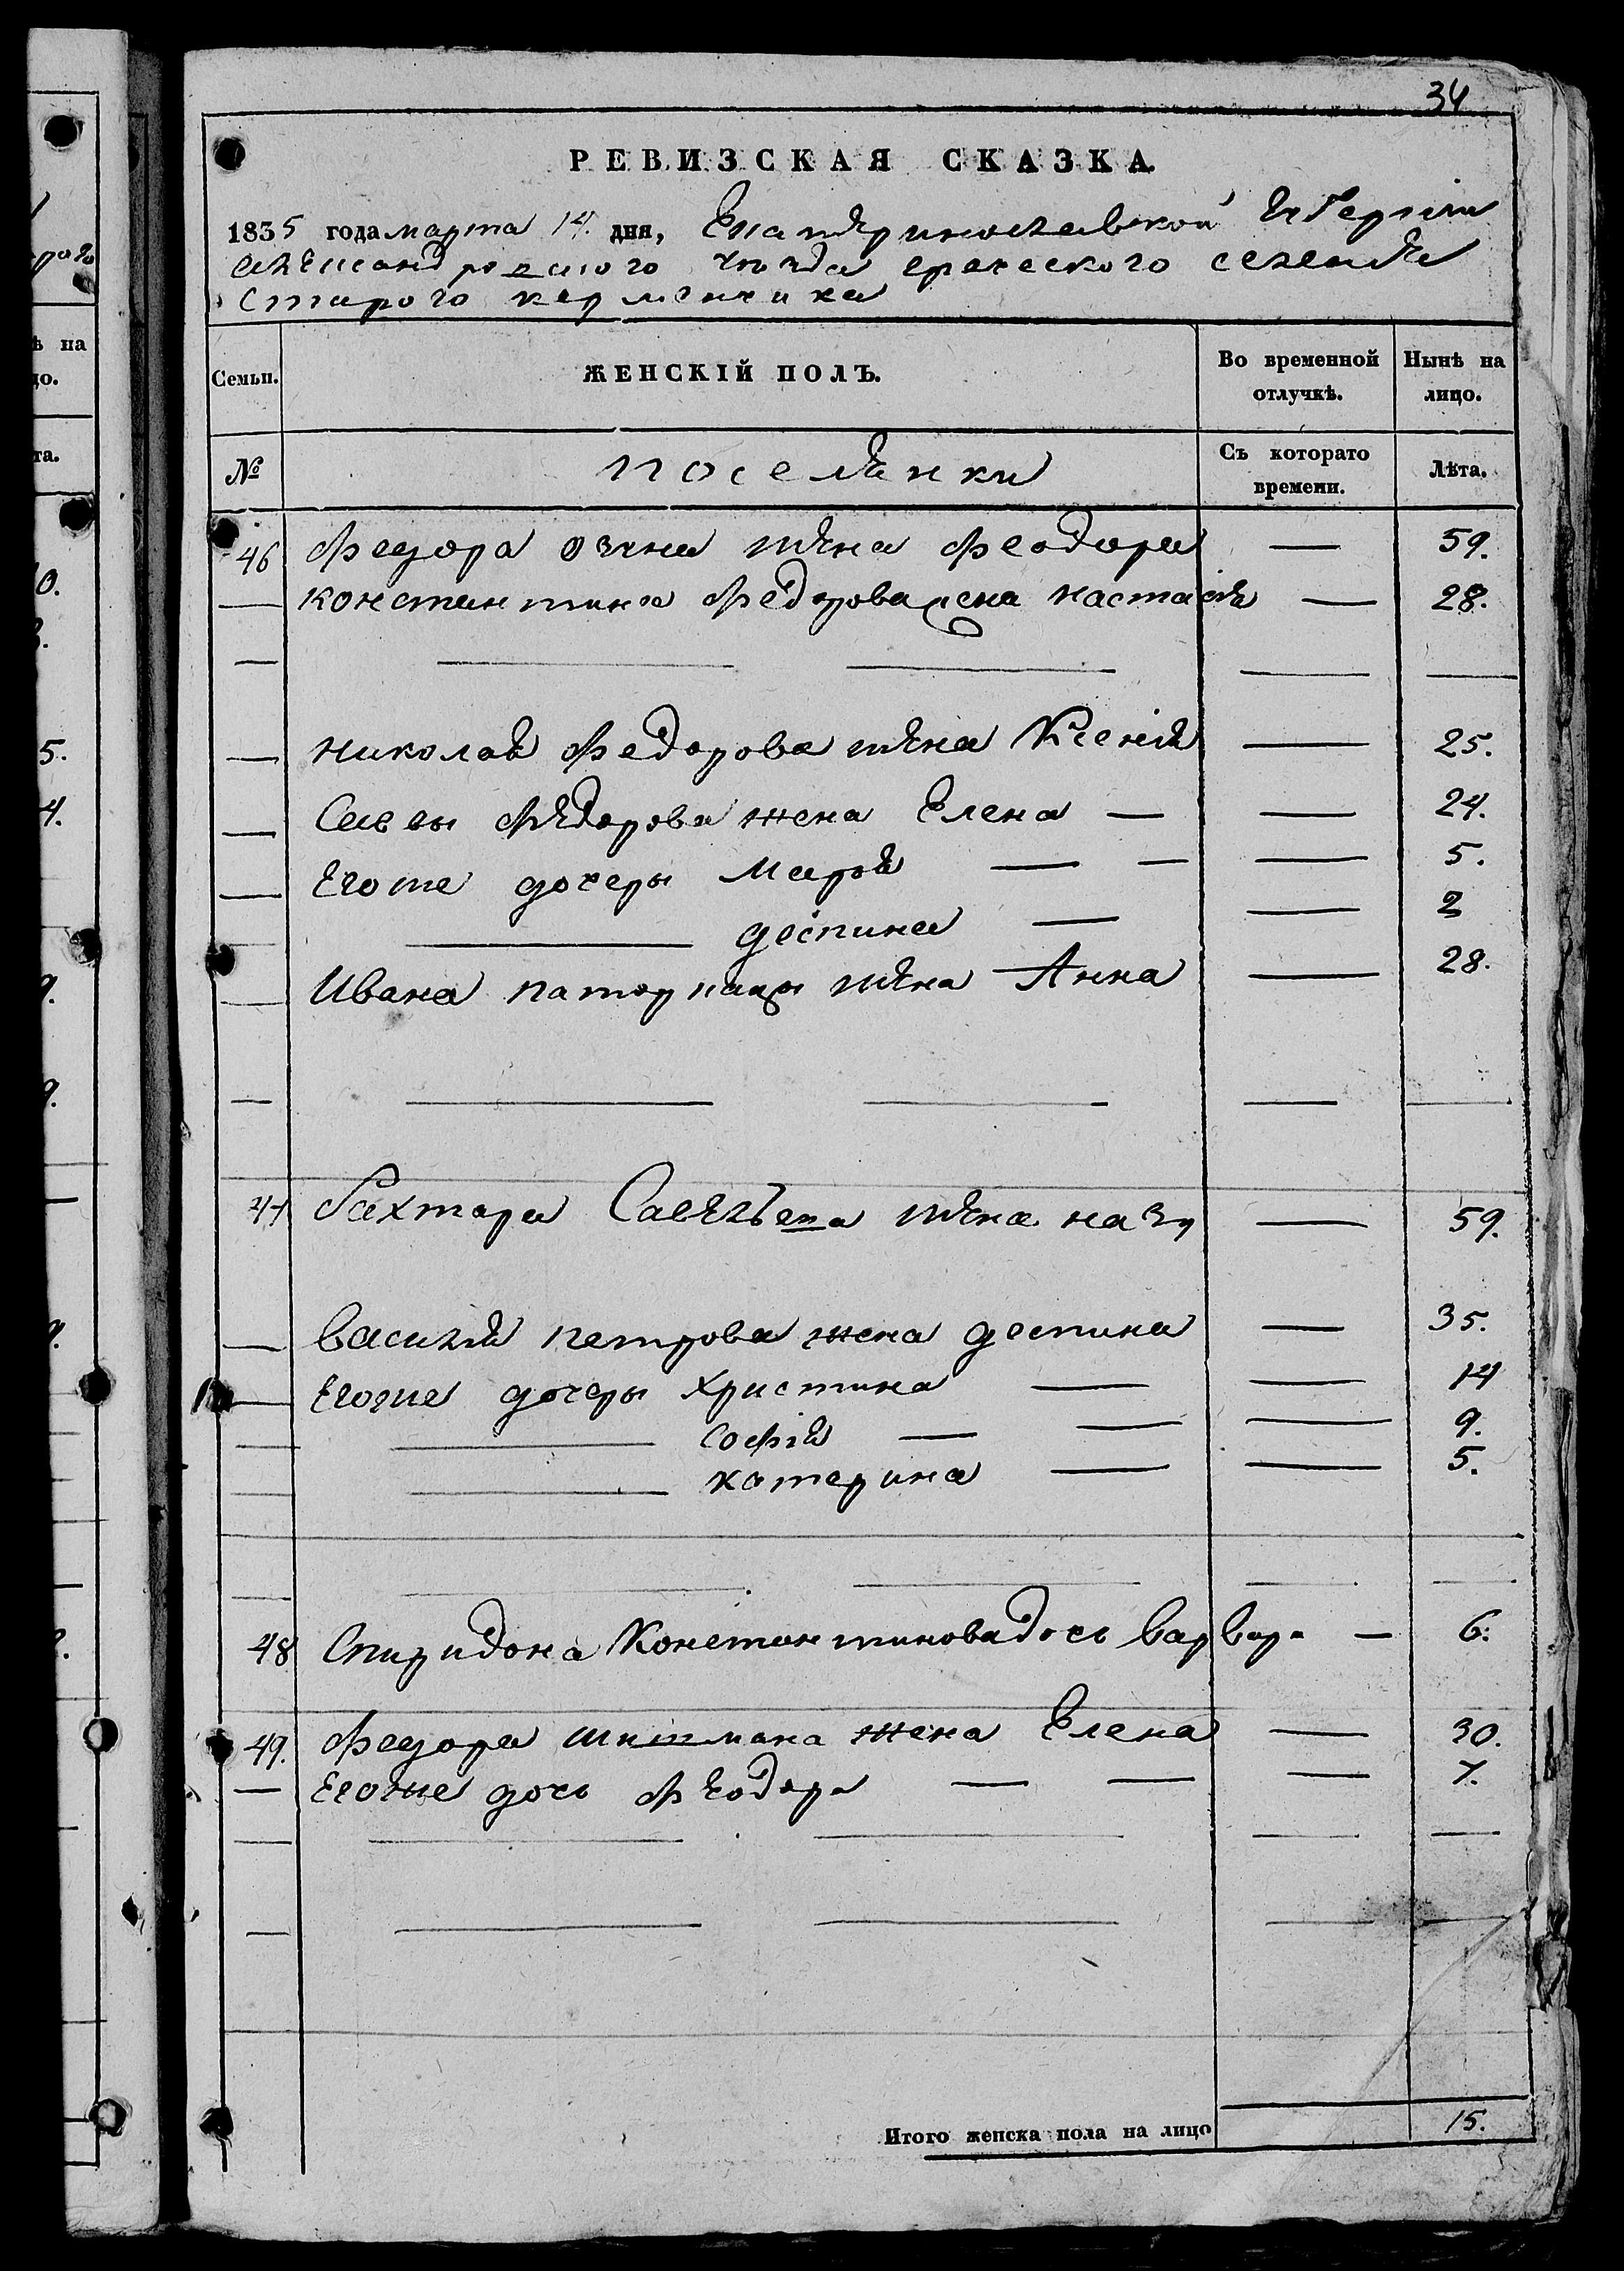 34
РЕВИЗСКАЯ СКАЗКА
1835 года марта 14. дня, Екатериновславской Губерніи
Александровского уезда греческого селения
Старого керменчика
Семьи. ЖЕНСКІЙ ПОЛЪ. Во временной отлучкѣ. Нынѣ на лицо.
№ поселянки Съ которато времени. Лѣта.
46 Федора жена Феодора — 59.
— константина Федорова жена настасия — 28.
— николая Федорова жена Ксения — 25.
— Саввы Федорова жена Елена — — 24.
— Егоже дочеры Мария — — — 5.
— деспина — — 2
— Ивана жена Анна — 28.
47 Савельева жена назу — 59.
— василия петрова жена деспина — 35.
— Егоже дочеры христина — — 14
— софия — — — 9.
— катерина — — 5.
48 Спиридона Константинова дочь варвара — 6.
49. Федора шишмана жена Елена — 30.
— Егоже дочь Феодора — — — 7.
Итого женска пола на лицо 15.